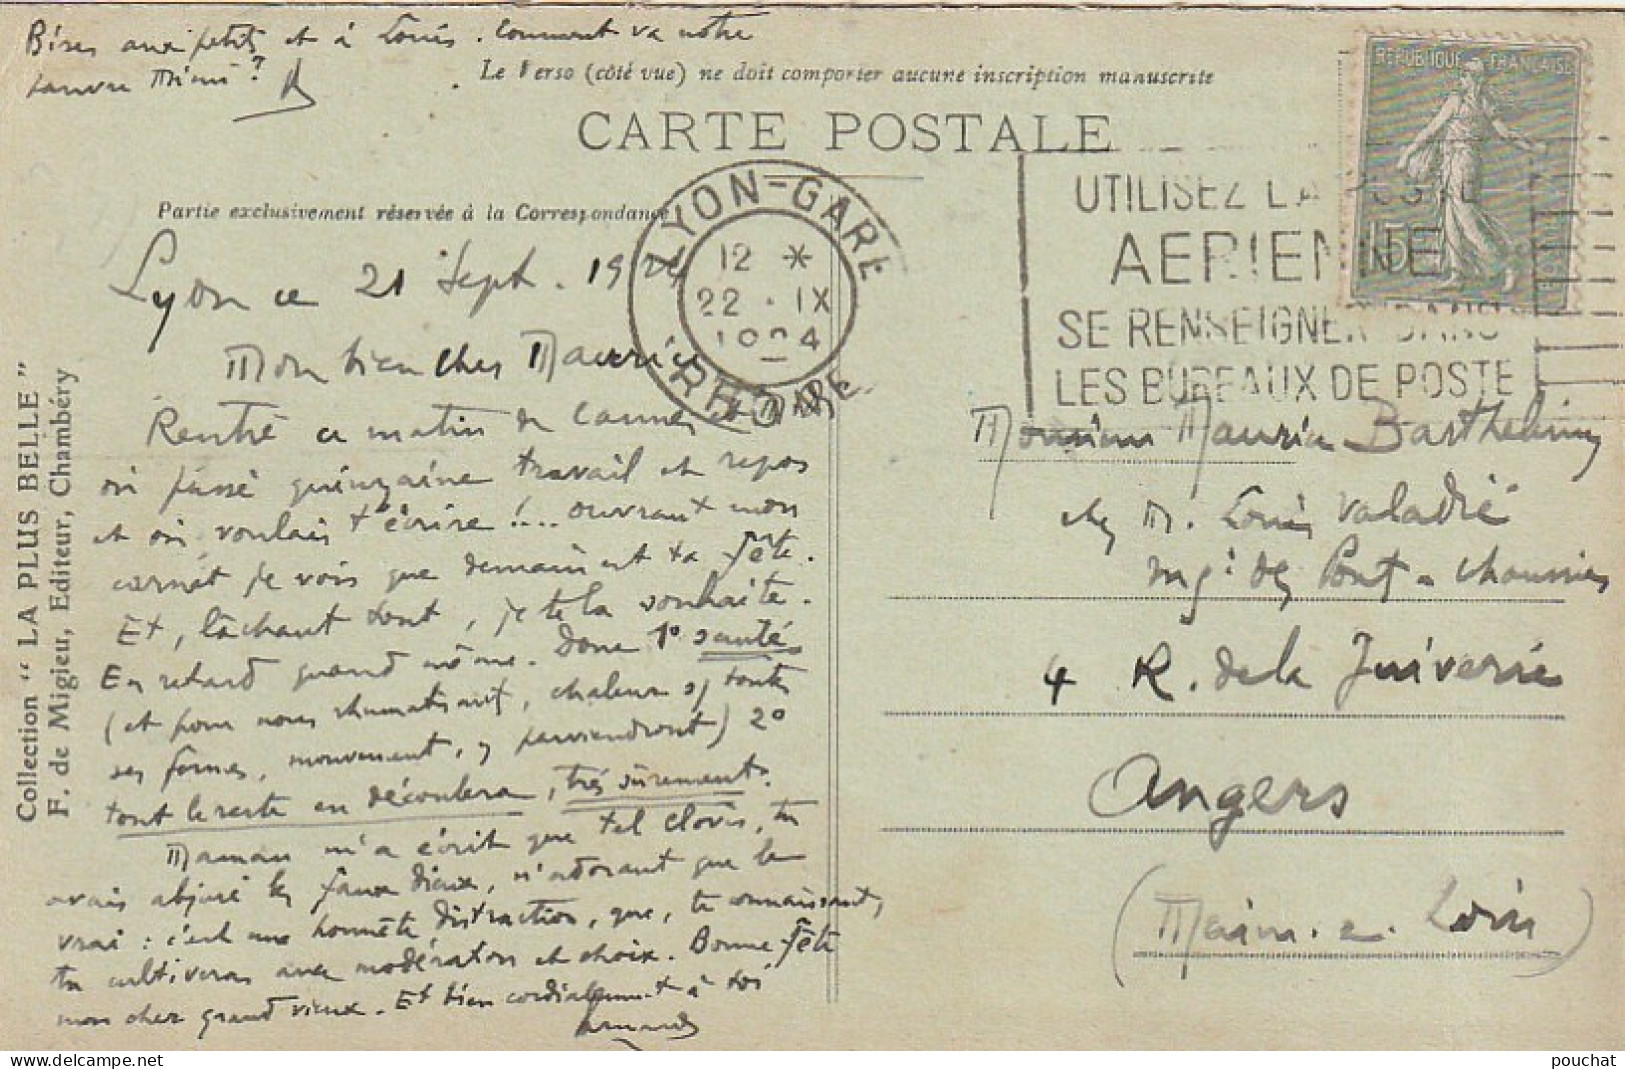 Bises aux petits et à Louis. Comment va notre
pauvre Mimi ?
Le Verso (côté vue) ne doit comporter aucune inscription manuscrite
CARTE POSTALE
Partie exclusivement réservée à la Correspondance
Lyon ce 21 Sept. 1924
Mon bien cher Maurice
Rentré ce matin de Cannes et
où passé quinzaine travail et repos
et où voulais t'écrire !... ouvrant mon
carnet je vois que demain est ta fête.
Et, lâchant tout, je te la souhaite.
En retard quand même. Donc 1° santé
(et pour nous rhumatisants, chaleur ss toutes
ses formes, mouvement, y parviendront) 2°
tout le reste en découlera, très sûrement.
Maman m'a écrit que tel Clovis, tu
avais abjuré les faux dieux, n'adorant que le
vrai : c'est une honnête distraction, que, te connaissant,
tu cultiveras avec modération et choix. Bonne fête
mon cher grand vieux. Et bien cordialement à toi
Armand
LYON-GARE
12 *
22 . IX
1924
RHONE
UTILISEZ LA POSTE
AERIENNE
SE RENSEIGNER DANS
LES BUREAUX DE POSTE
REPUBLIQUE FRANÇAISE
15c
Monsieur Maurice Barthelemy
chez M. Louis Valadié
ing: des Pont-s chaussées
4 R. de la Juiverie
Angers
(Maine-e-Loire)
Collection "LA PLUS BELLE"
F. de Migieu, Editeur, Chambéry
www.delcampe.net
pouchat